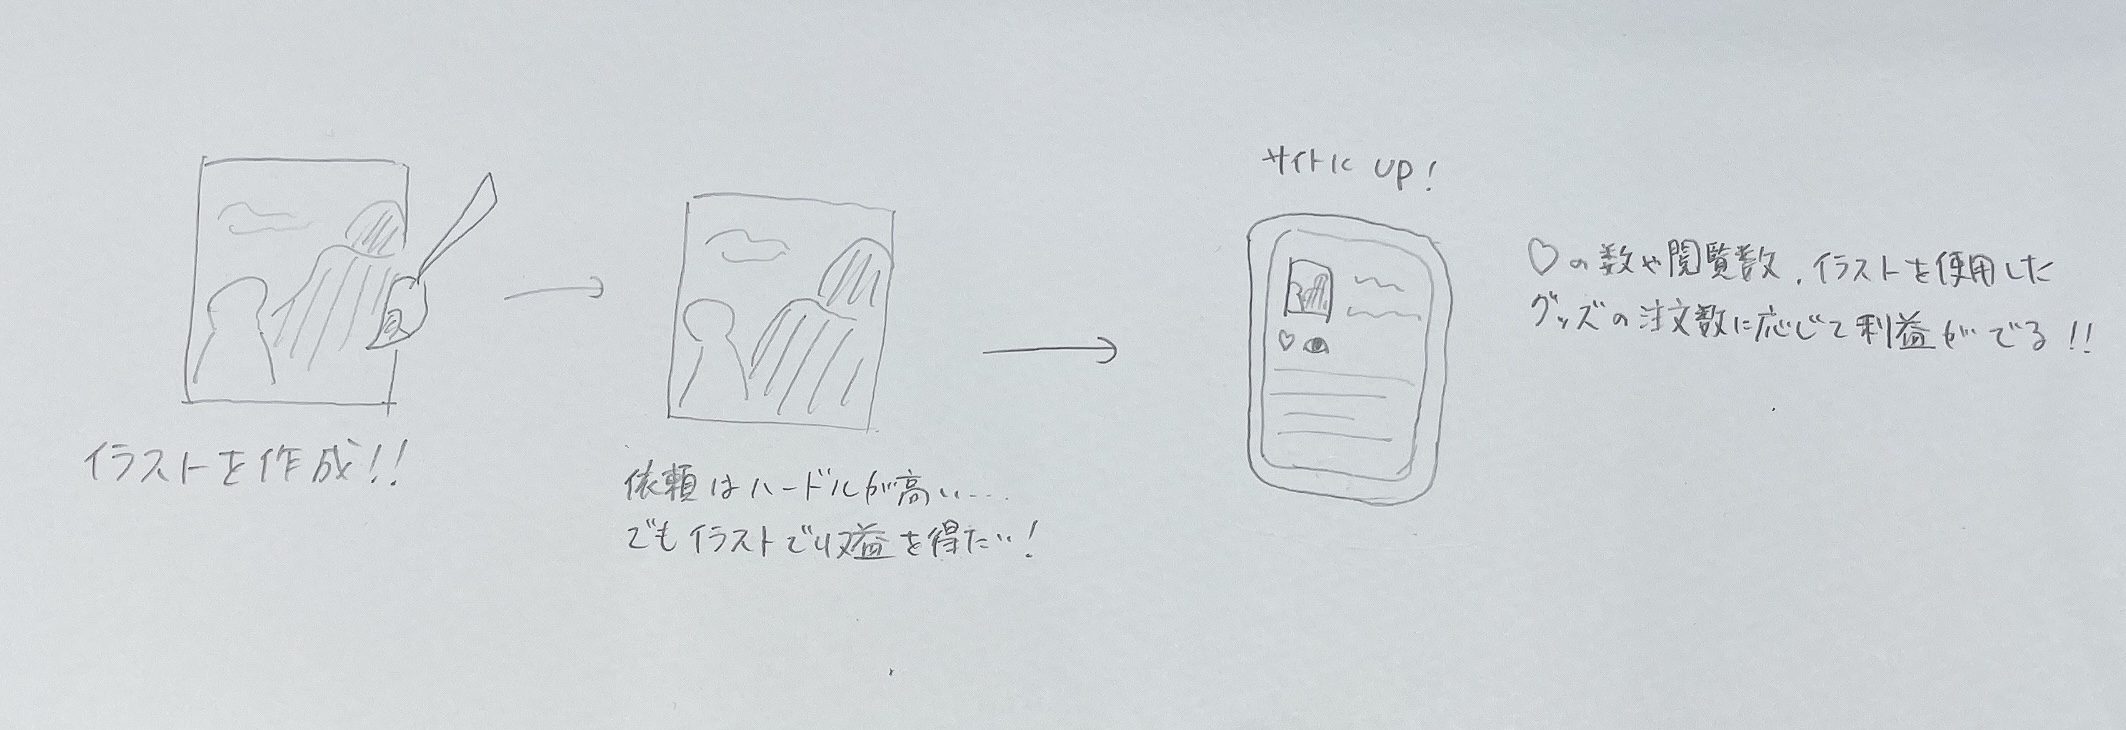 イラストを作成!!
依頼はハードルが高い....
でもイラストで収益を得たい!
サイトにup!
♡の数や閲覧数、イラストを使用した
グッズの注文数に応じて利益がでる!!